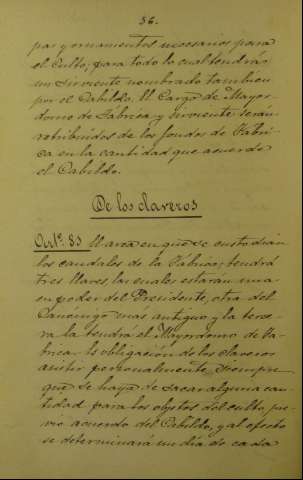 56.
pas y ornamentos necesarios para
el Culto, para todo lo cual tendrá
un sirviente nombrado tambien
por el Cabildo. El Cargo de Mayor-
domo de Fábrica y sirviente serán
retribuidos de los fondos de Fábri-
ca en la cantidad que acuerde
el Cabildo.
De los claveros
Artº. 83 El arca en que se custodian
los caudales de la Fábrica, tendrá
tres llaves, las cuales estarán una
en poder del Presidente, otra del
Canónigo mas antiguo y la terce-
ra la tendrá el Mayordomo de Fá-
brica. Es obligacion de los claveros
asistir personalmente, siempre
que se haya de sacar alguna can-
tidad para los objetos del culto, pre-
vio acuerdo del Cabildo, y al efecto
se determinará un dia de cada